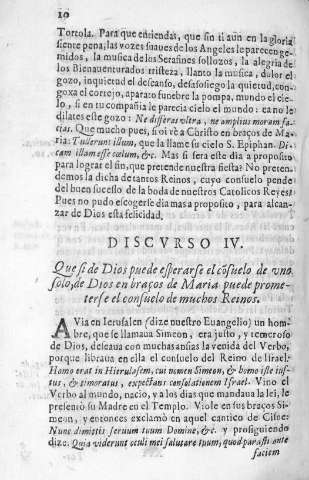 10
Tortola. Para que entiendas, que sin ti aun en la gloria
siente pena, las vozes suaues de los Angeles le parecen ge-
midos, la musica de los Serafines sollozos, la alegria de
los Bienauenturados tristeza, llanto la musica, dolor el
gozo, inquietud el descanso, desasosiego la quietud, con-
goxa el cortejo, aparato funebre la pompa, mundo el cie-
lo, si en tu compañia le parecia cielo el mundo: ea no le
dilates este gozo: Ne differas vltra, ne amplius moram fa-
cias. Que mucho pues, si oì vè a Christo en braços de Ma-
ria: Tullerunt illum, que la llame su cielo S. Epiphan. Di-
cam illam esse cœlum, &c. Mas si sera este dia a proposito
para lograr el fin, que pretende nuestra fiesta? No preten-
demos la dicha de tantos Reinos, cuyo consuelo pende
del buen sucesso de la boda de nuestros Catolicos Reyes?
Pues no pudo escogerse dia mas a proposito, para alcan-
zar de Dios esta felicidad.
DISCVRSO IV.
Que si de Dios puede esperarse el cõsuelo de vno
solo, de Dios en braços de Maria puede prome-
terse el consuelo de muchos Reinos.
AVia en Ierusalen (dize nuestro Euangelio) un hom-
bre, que se llamaua Simeon, era justo, y temeroso
de Dios, deseaua con muchas ansias la venida del Verbo,
porque libraua en ella el consuelo del Reino de Israel.
Homo erat in Hierusalem, cui nomen Simeon, & homo iste ius-
tus, & timoratus, expectans consolationem Israel. Vino el
Verbo al mundo, nacio, y a los dias que mandaua la lei, le
presentò su Madre en el Templo. Viole en sus braços Si-
meon, y entonces exclamò en aquel cantico de Cisne:
Nunc dimittis seruum tuum Domine, &c. y prosiguiendo
dize. Quia viderunt oculi mei salutare tuum, quod parasti ante
faciem